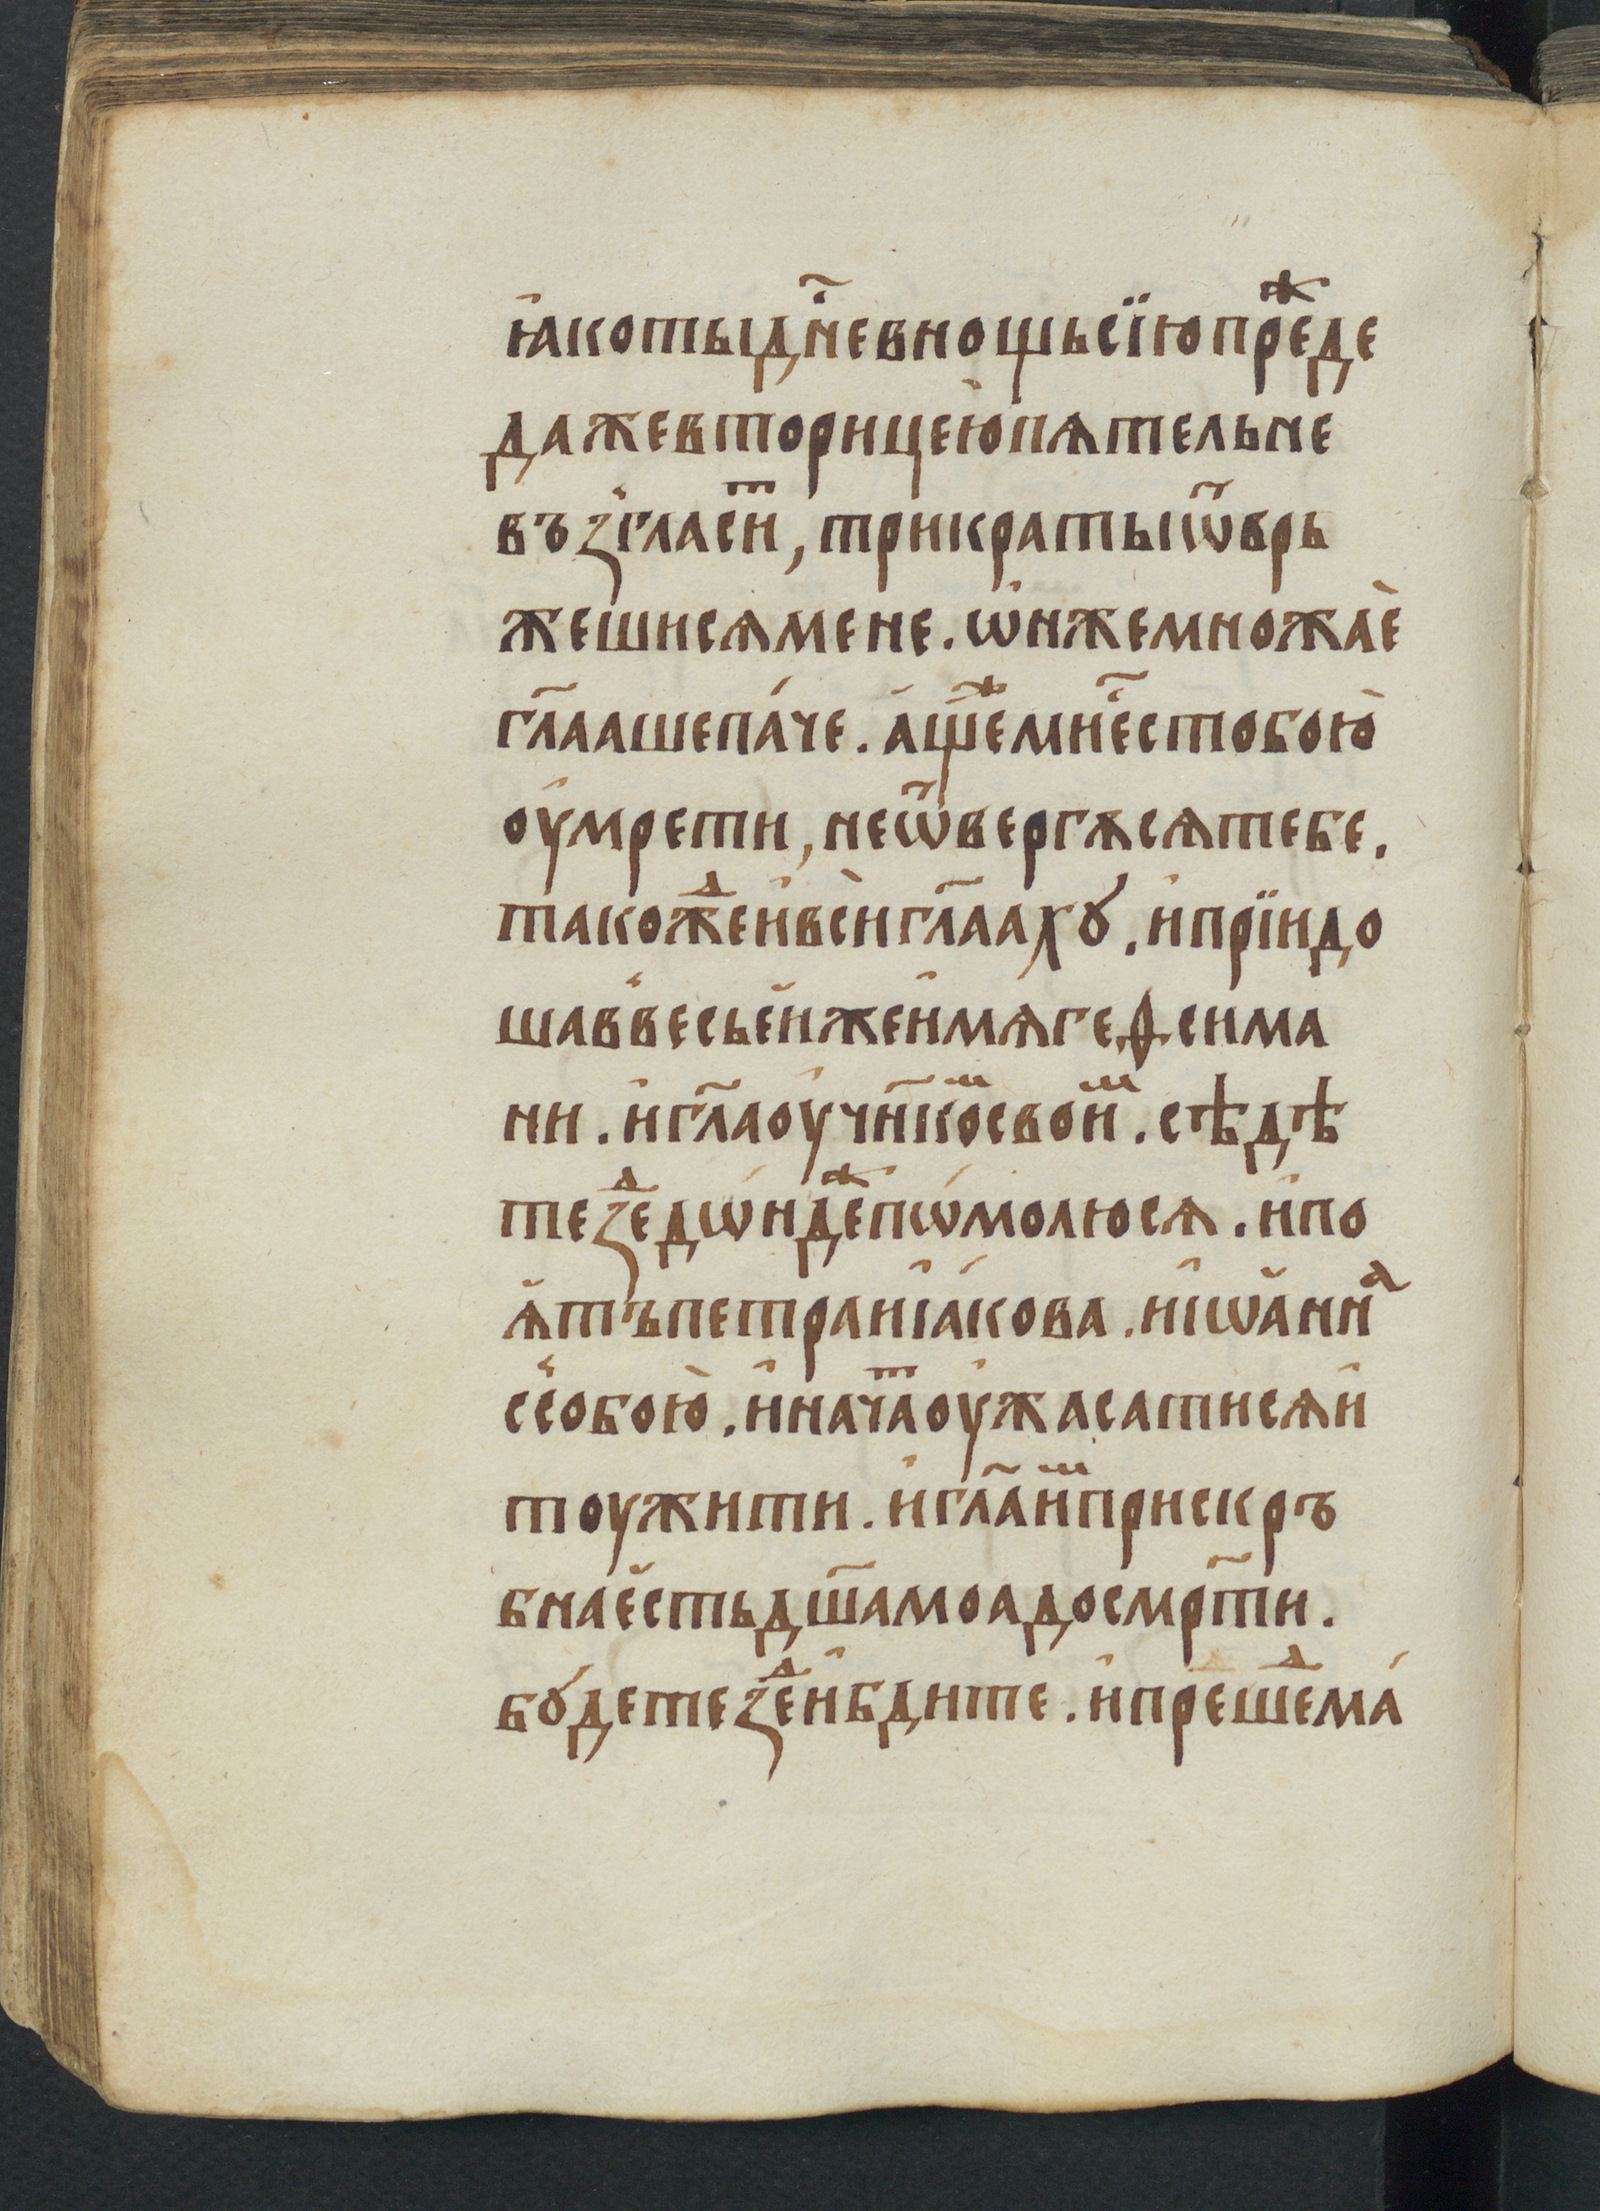 ꙗ҆котыдн҃евнощьсїюпреⷤде
дажевторицею̀пѧтельне
въꙁгласиⷮ, трикратыѿврь
жешисѧмене. ѻ҆нжемножаѐ
гл҃аашепа́че. а҆щеⷤмнѣ҃стобою̀
оу҆мрети, неѿвергѫсѧтебе.
такожеⷣи҆всѝгл҃аахꙋ. и҆прїидо
шаввесьеи҆жеи҆мѧгеѳсима
ни. и҆гл҃аоу҆чн҃коⷨсвоиⷨ. сѣдѣ
теꙁеⷣдѡ́ндеⷤпѡ́молюсѧ. и҆по
ѧ҆тъпетраиі҆а́кова. иі҆ѡа҆ннⷶ
ссобою̀. и҆начаⷮоу҆жасатисѧи҆
тоужити. и҆гл҃аиⷨприскръ
бнае҆стьдш҃амоадосмр҃ти.
бꙋ́детеꙁеⷣи҆бдите. и҆прешеⷣма́